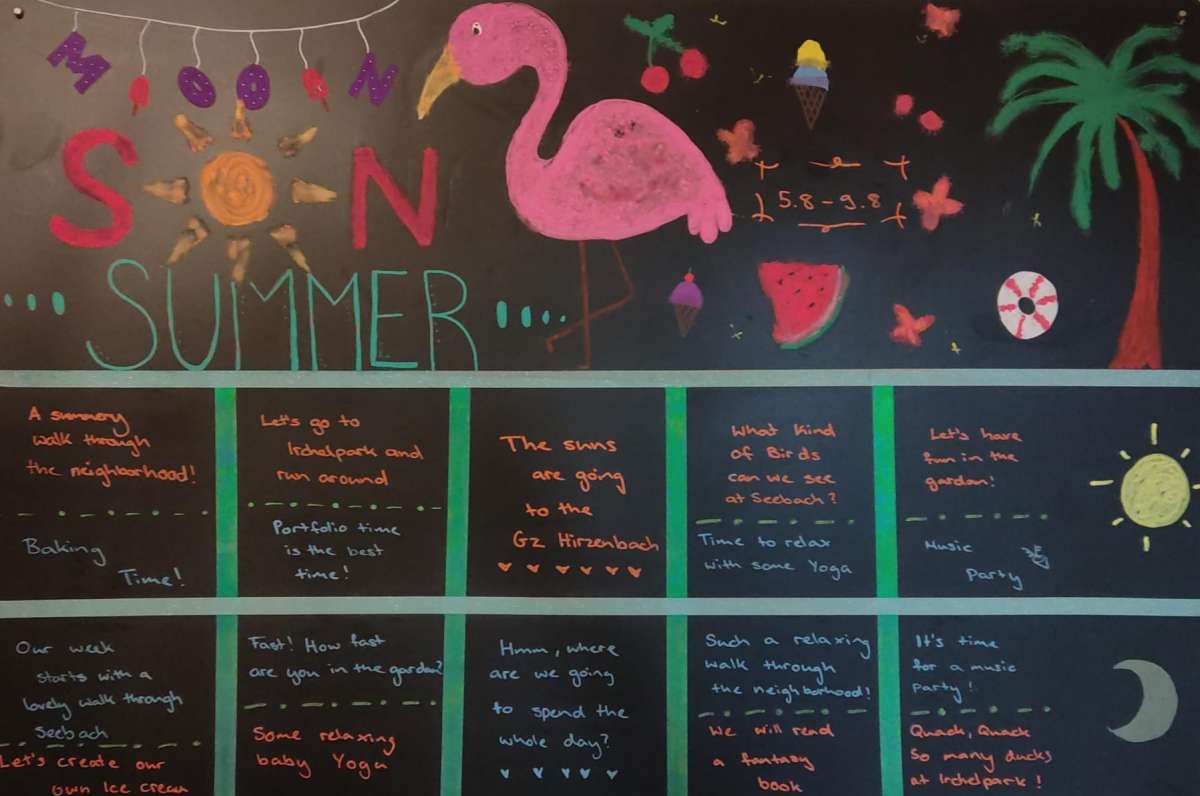 MOON
SN
SUMMER
5.8-9.8
A summery
walk through
the neighborhood!
Baking
Time!
Let's go to
Irchelpark and
run around
Portfolio time
is the best
time!
The suns
are going
to the
Gz Hirzenbach
What kind
of Birds
can we see
at Seebach?
Time to relax
with some Yoga
Let's have
fun in the
gardan!
Music
Party
Our week
starts with a
lovely walk through
Seebach
Let's create our
own Ice cream
Fast! How fast
are you in the gardan?
Some relaxing
baby Yoga
Hmm, where
are we going
to spend the
whole day?
Such a relaxing
walk through
the neighborhood!
We will read
a fantasy
book
It's time
for a music
party!
Quack, Quack
So many ducks
at Irchelpark!